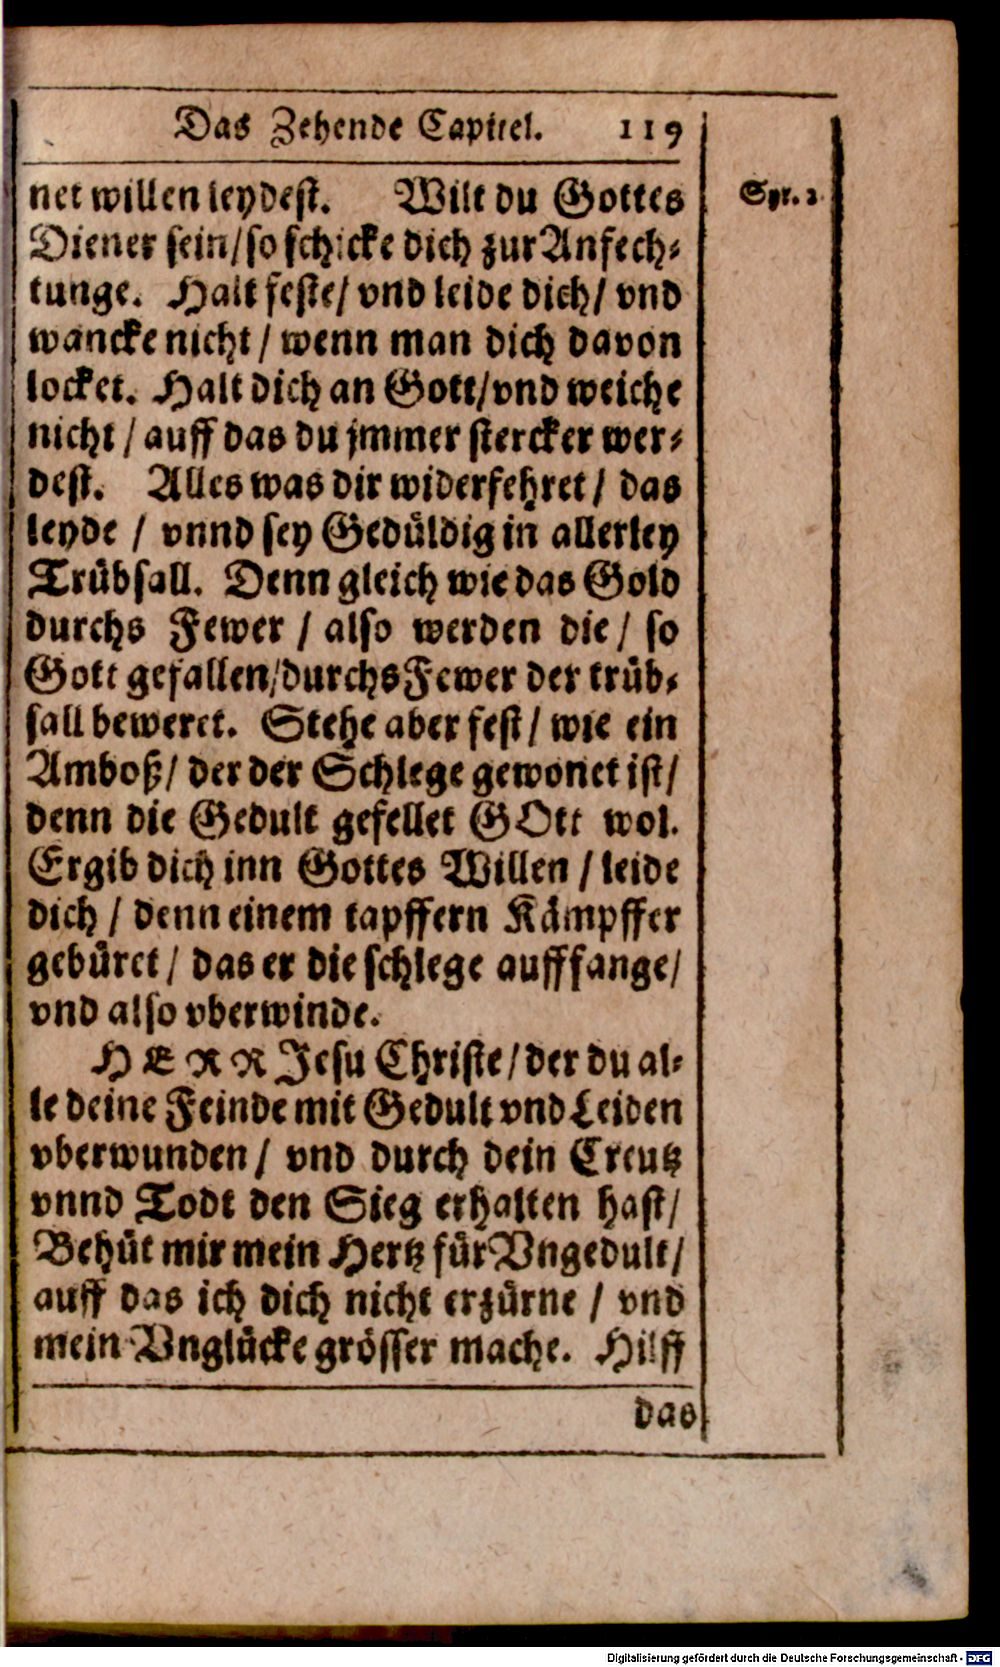 Das Zehende Capitel. 119
net willen leydest. Wilt du Gottes
Syr. 2.
Diener sein/ so schicke dich zur Anfech-
tunge. Halt feste/ vnd leide dich/ vnd
wancke nicht/ wenn man dich davon
locket. Halt dich an Gott/ vnd weiche
nicht/ auff das du jmmer stercker wer-
dest. Alles was dir widerfehret/ das
leyde/ vnnd sey Gedüldig in allerley
Trübsall. Denn gleich wie das Gold
durchs Fewer/ also werden die/ so
Gott gefallen/ durchs Fewer der trüb-
sall beweret. Stehe aber fest/ wie ein
Amboß/ der der Schlege gewonet ist/
denn die Gedult gefellet GOtt wol.
Ergib dich inn Gottes Willen/ leide
dich/ denn einem tapffern Kämpffer
gebüret/ das er die schlege aufffange/
vnd also vberwinde.
HERR Jesu Christe/ der du al-
le deine Feinde mit Gedult vnd Leiden
vberwunden/ vnd durch dein Creutz
vnnd Todt den Sieg erhalten hast/
Behüt mir mein Hertz für Vngedult/
auff das ich dich nicht erzürne/ vnd
mein Vnglücke grösser mache. Hilff
das
Digitalisierung gefördert durch die Deutsche Forschungsgemeinschaft - DFG